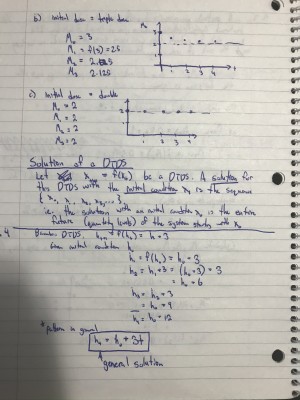 b) initial dose = triple dose
M₀ = 3
M₁ = f(3) = 2.5
M₂ = 2.25
M₃ 2.125
c) initial dose = double
M₀ = 2
M₁ = 2
M₂ = 2
M₃ = 2
Solution of a DTDS
Let = f(h₀) be a DTDS. A solution for
this DTDS with the initial condition x₀ is the sequence
{ x₀, x₁, x₂, x₃, ... }
i.e. the solution with an initial condition x₀ is the entire
future (quantity levels) of the system starting with x₀
DTDS, = f(h₀) = h + 3
initial condition h
h₁ = f(h₀) = h₀ + 3
h₂ = h₁ + 3 = (h₀ + 3) + 3
= h₀ + 6
h₃ = h₂ + 3
= h₀ + 9
h₄ = h₀ + 12
*pattern in general
hₜ = h₀ + 3t
general solution